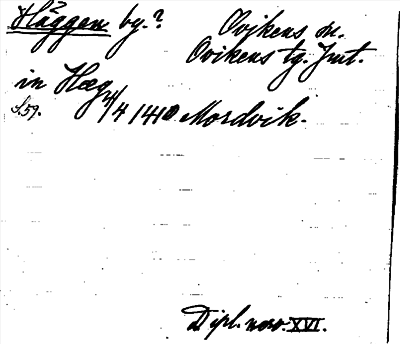 Häggen by.? Ovikens sn.
Ovikens tg. Jmt.
in Hæg
S.59. 4/4 1410 Mordvik.
Dipl. norv. XVI.